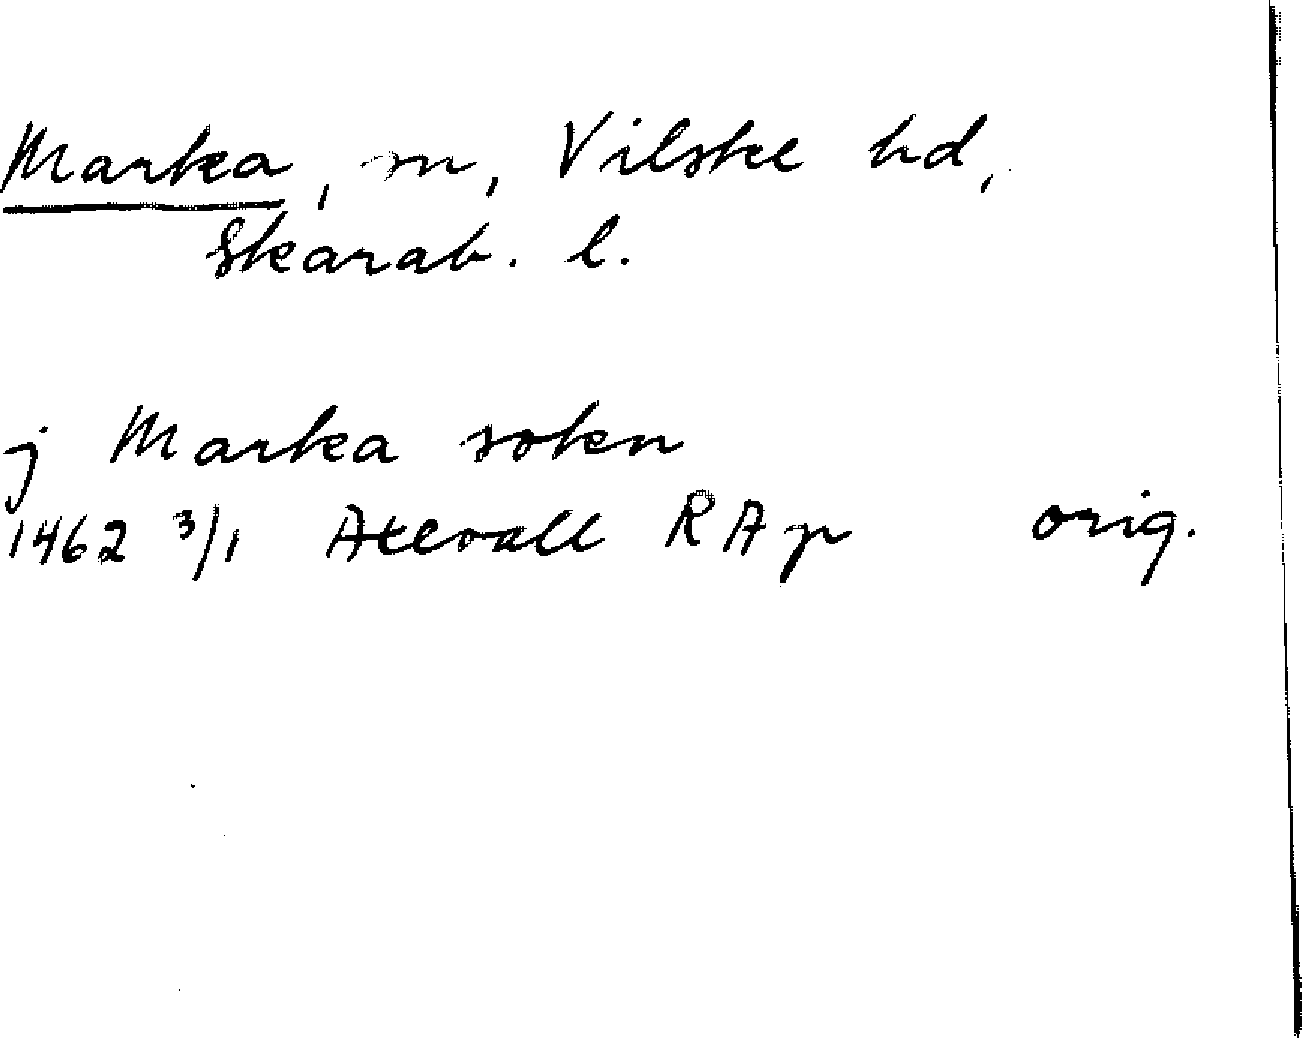 Marka, sn, Vilske hd,
Skarab. l.
j Marka sokn
1462 3/1 Atlevall RAp orig.